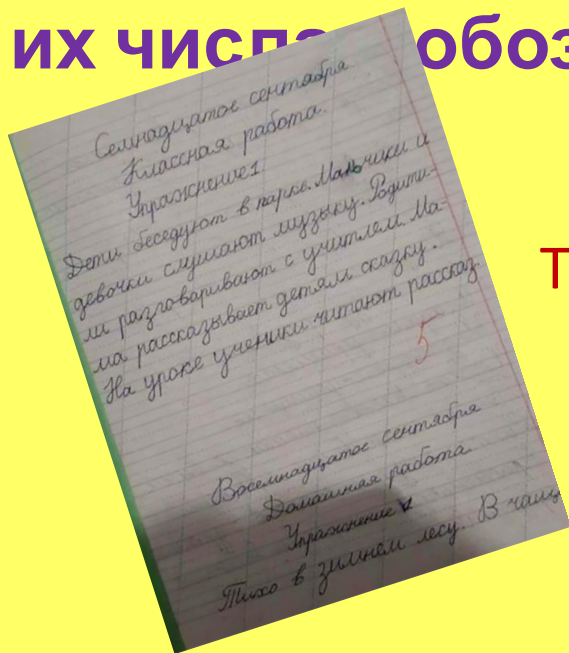 их числа обоз
Т
Семнадцатое сентября
Классная работа.
Упражнение 1.
Дети беседуют в парке. Мальчики и
девочки слушают музыку. Родити-
ли разговаривают с учитлем. Ма-
ма рассказывает детям сказку.
На уроке ученики читают рассказ.
5
Восемнадцатое сентября
Домашняя работа
Упражнение 1
Тихо в зимнем лесу. В чащ